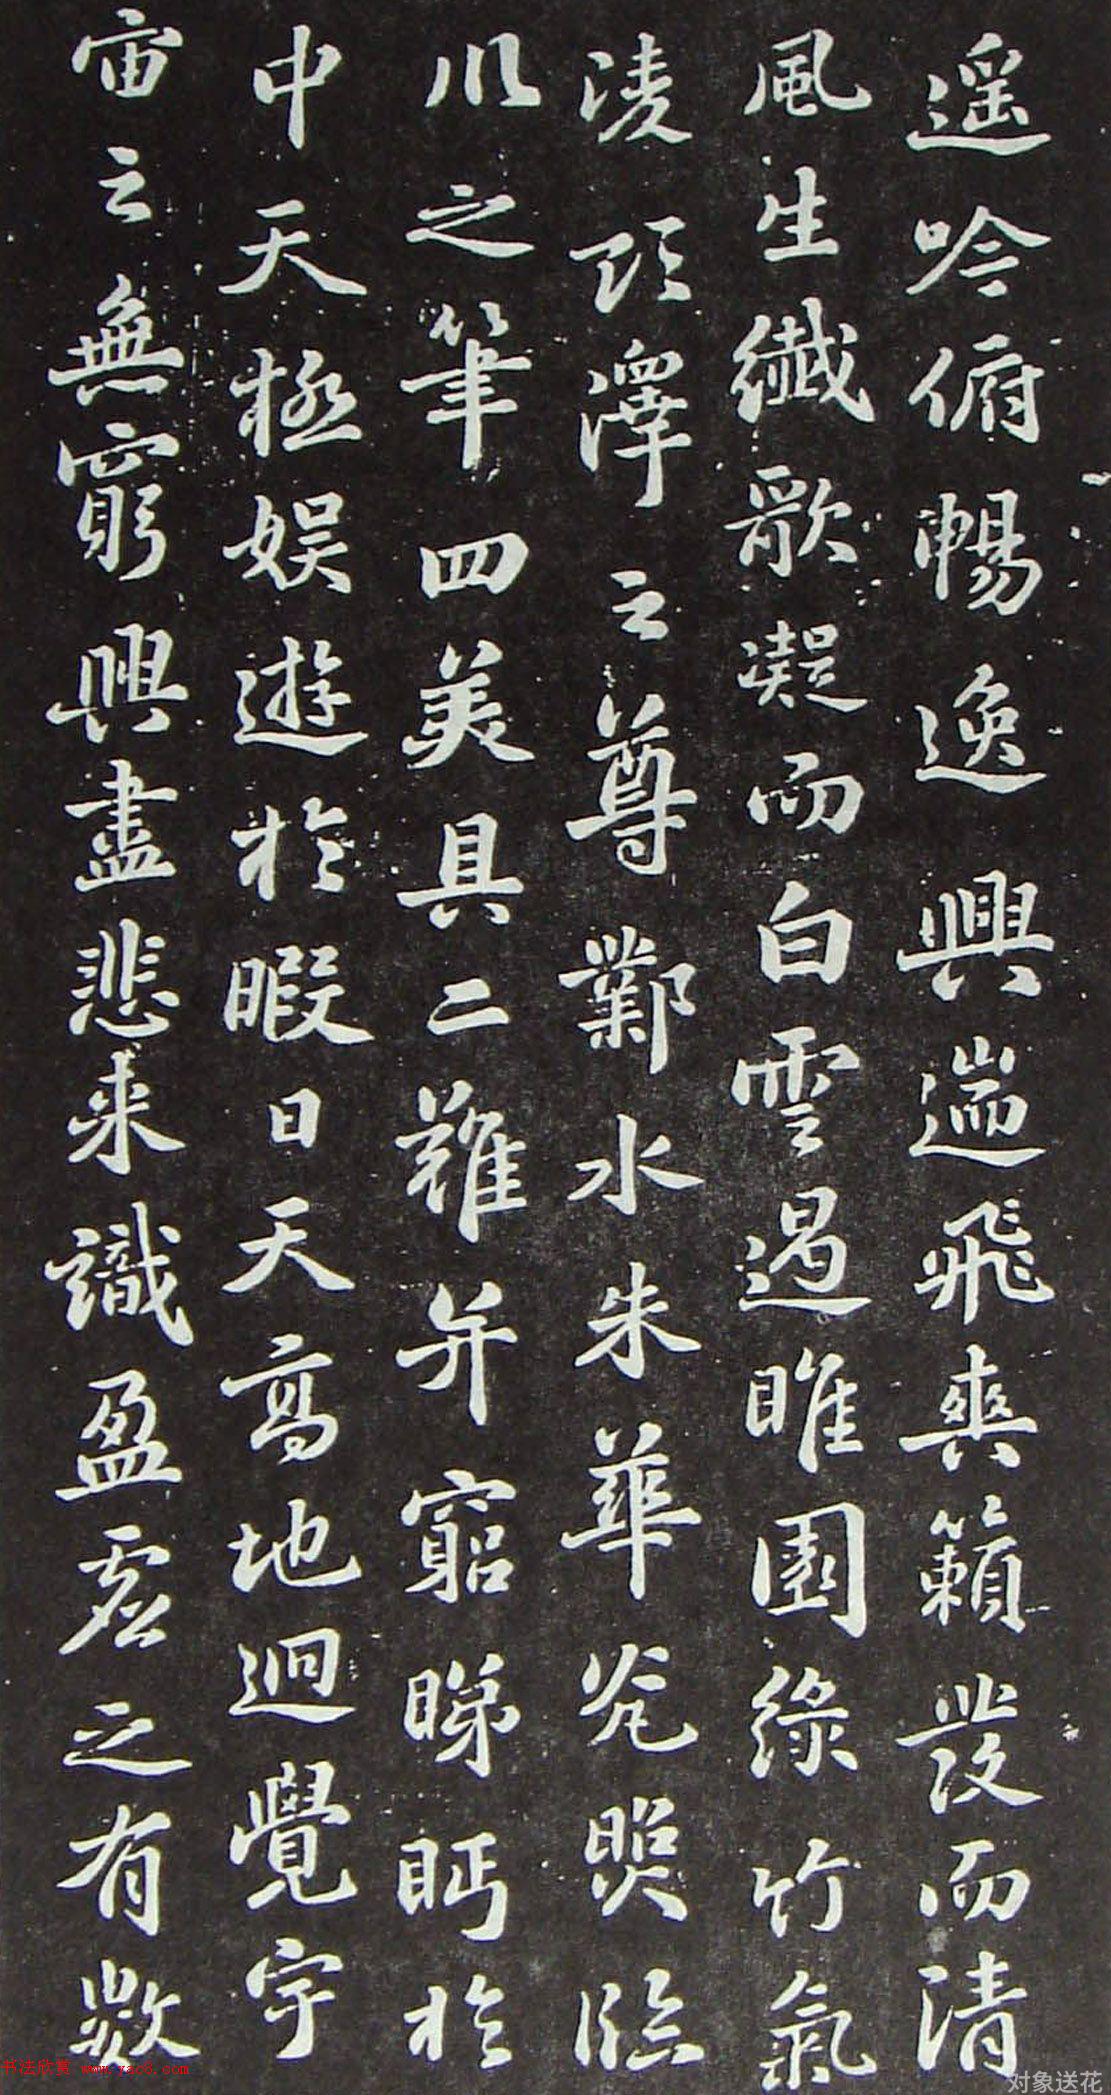 遥吟俯暢逸興遄飛爽籟發而清
風生纖歌凝而白雲遏睢園綠竹氣
淩彭澤之尊鄴水朱華光照臨
川之筆四美具二難并窮睇眄於
中天極娛遊於暇日天高地迥覺宇
宙之無窮興盡悲來識盈虛之有數
书法欣赏 www.yac8.com
对象送花